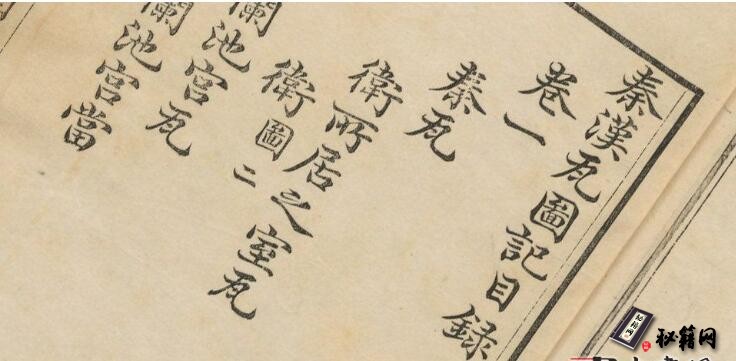 秦漢瓦圖記目錄
卷一
秦瓦
衛所居之室瓦
衛圖二
蘭池宮瓦
蘭池宮當
秘籍网